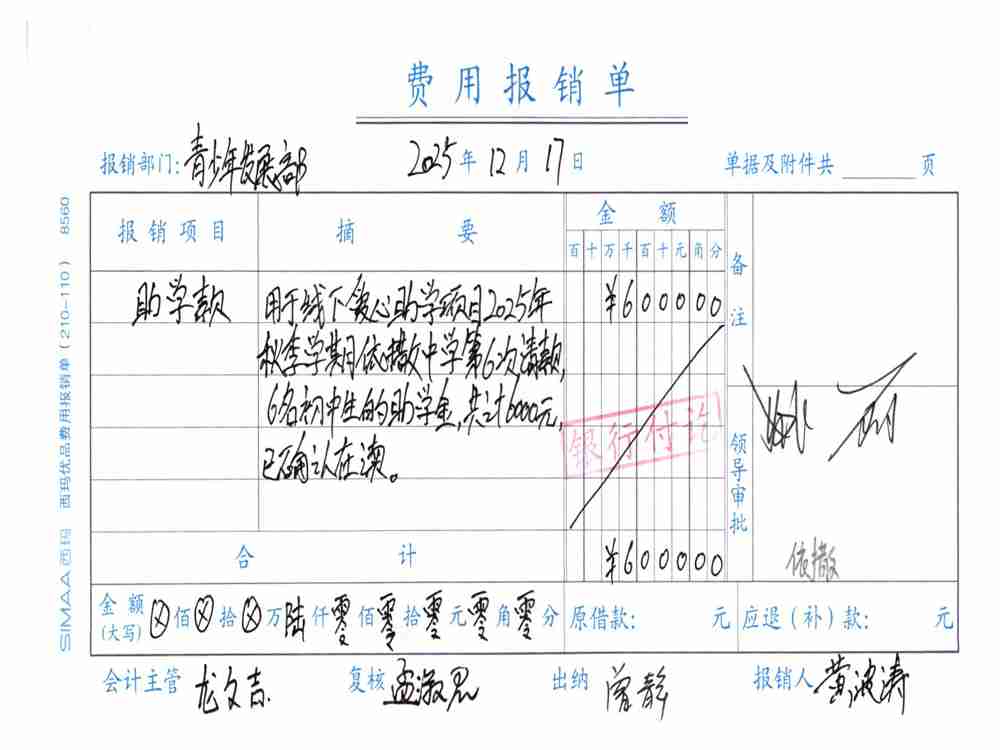 费用报销单
报销部门:青少年发展部 2025年12月17日 单据及附件共 页
报销项目 摘要 金额 备注
百十万千百十元角分
助学款 用于线下爱心助学项目2025年 ¥600000
秋季学期依撒中学第6次请款,
6名初中生的助学金,共计6000元,
已确认在读。
银行付讫
领导审批
依撒
合计 ¥600000
金额(大写) ⊗佰⊗拾⊗万陆仟零佰零拾零元零角零分 原借款: 元 应退(补)款: 元
会计主管 龙文吉 复核 孟淑思 出纳 曾静 报销人 黄波涛
SIMAA西玛 西玛优品费用报销单(210-110) 8560